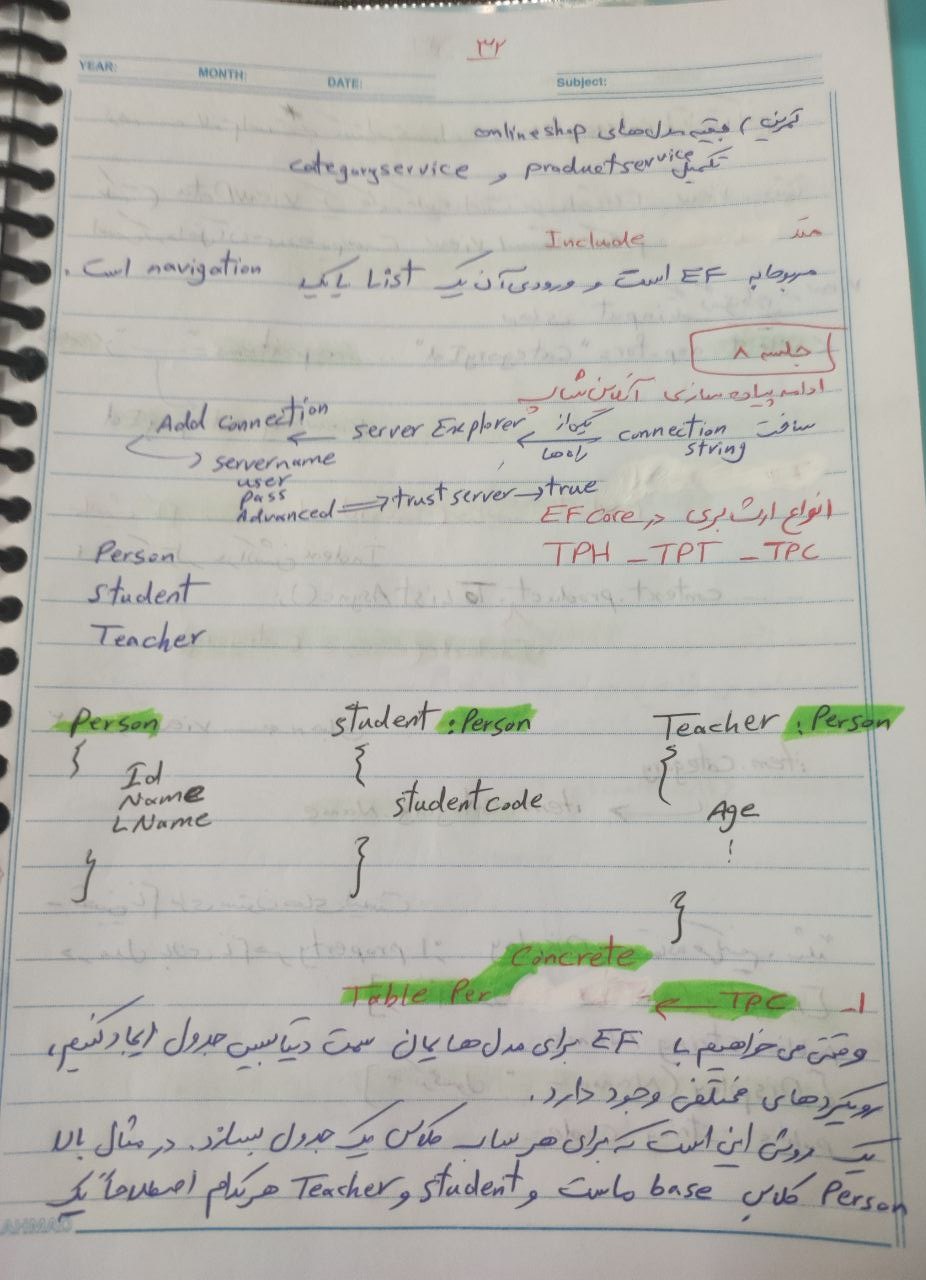 ۳۲
YEAR: MONTH: DATE: Subject:
تمرین) بقیه مدل‌های onlineshop
تکمیل productservice و categoryservice
متد Include
مربوط به EF است و ورودی آن یک List یا یک navigation است.
جلسه ۸
ادامه پیاده سازی آنلاین شاپ
ساخت connection string ← یکی از راه‌ها server Explorer ← Add connection
servername
user
pass
Advanced ⟹ trust server → true
انواع ارث بری در EF Core
TPH – TPT – TPC
Person
student
Teacher
Person student : Person Teacher : Person
{ { {
Id
Name studentcode Age
LName
} } }
۱- TPC ← Table Per Concrete
وقتی می خواهیم با EF برای مدل هایمان سمت دیتابیس جدول ایجاد کنیم،
رویکردهای مختلفی وجود دارد.
یک روش این است که برای هر ساب کلاس یک جدول بسازد. در مثال بالا
Person کلاس base ماست و student و Teacher هر کدام اصطلاحاً یک